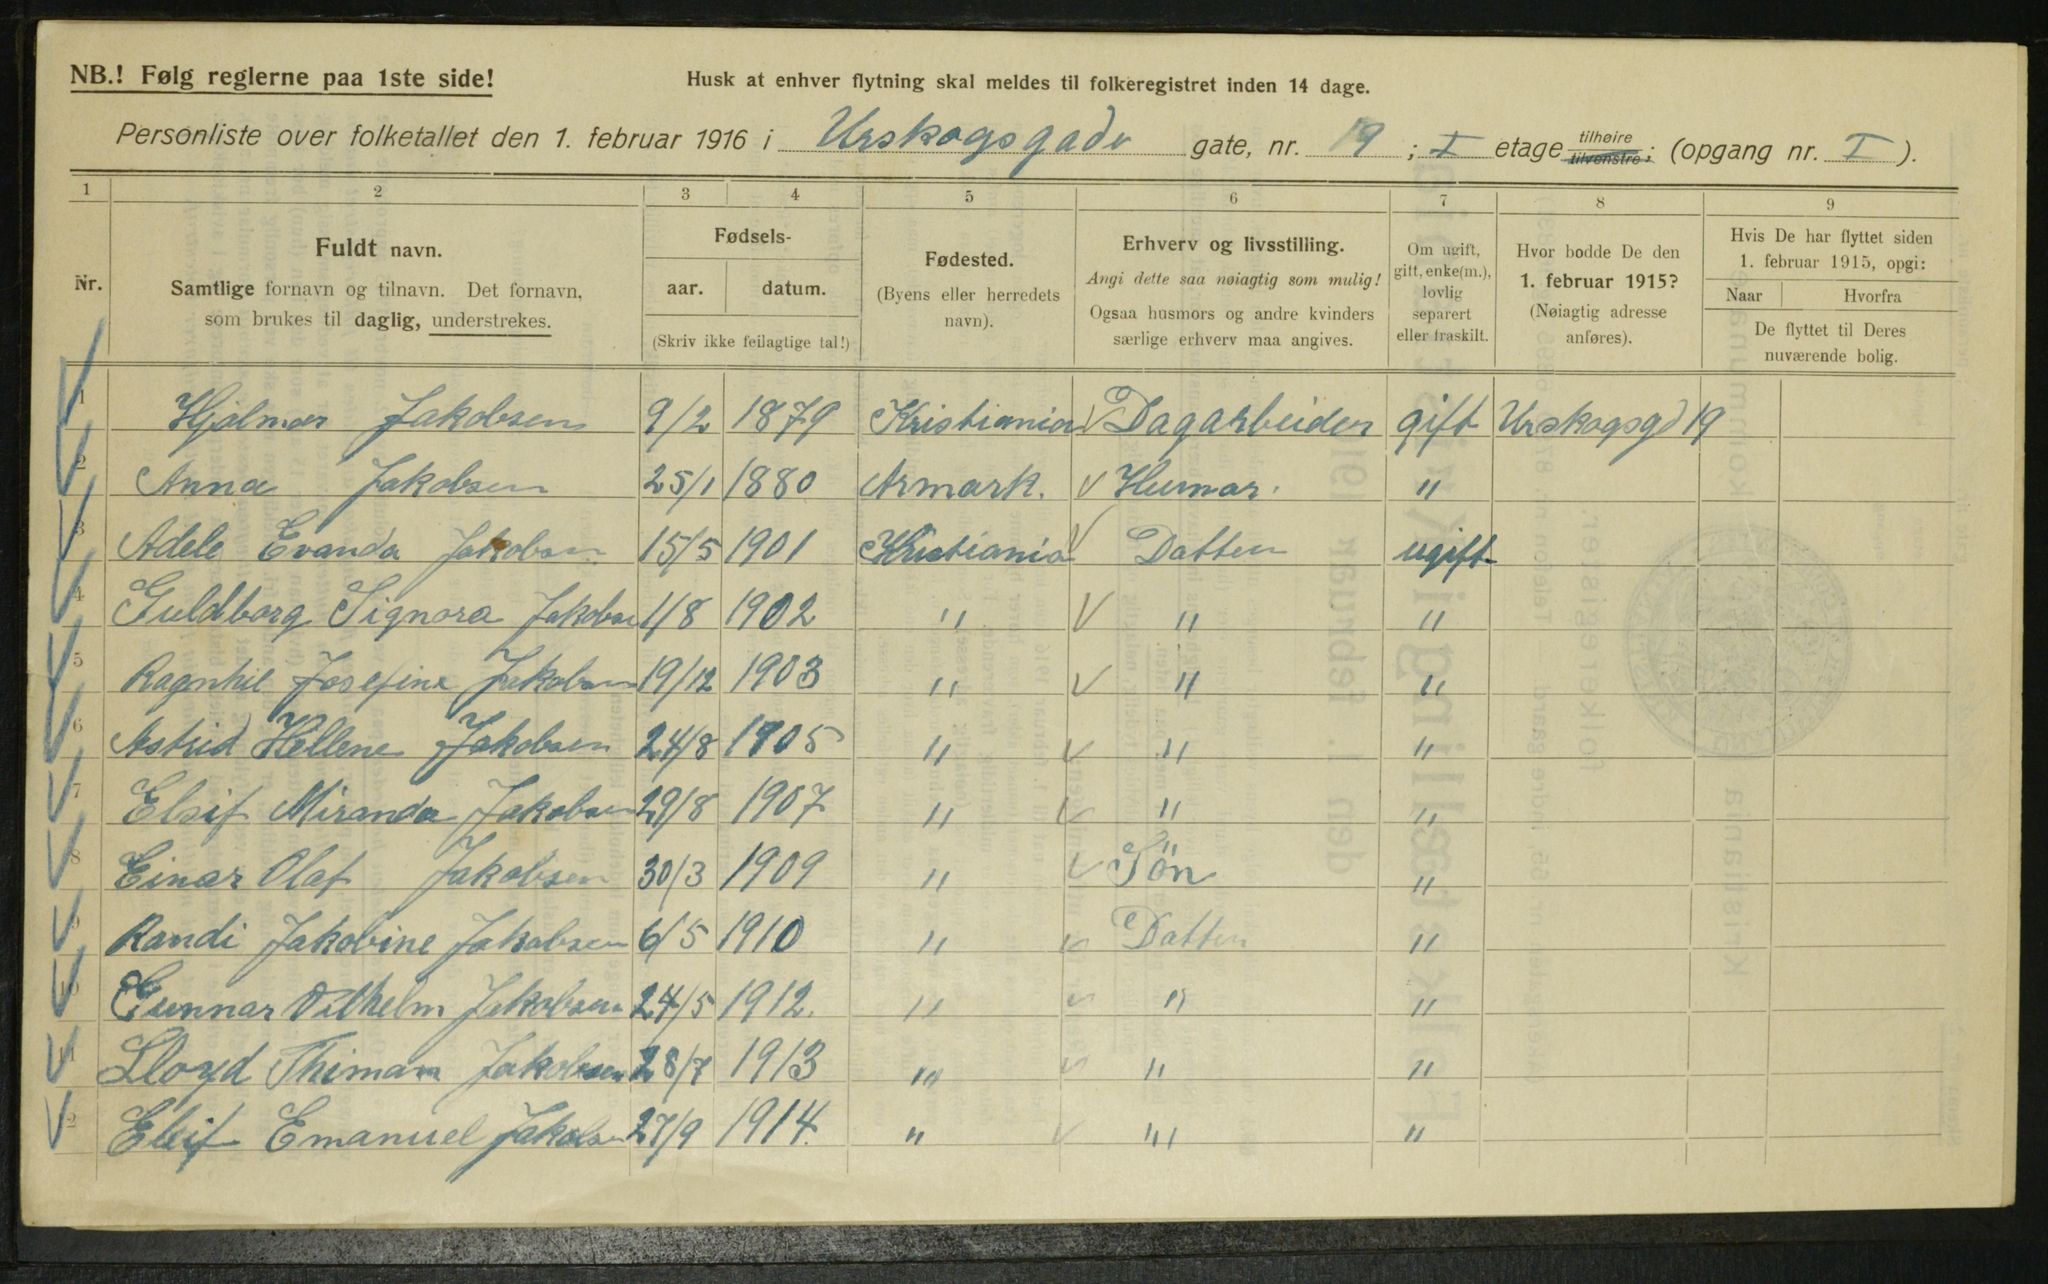 NB.! Følg reglerne paa 1ste side!
Husk at enhver flytning skal meldes til folkeregistret inden 14 dage.
Personliste over folketallet den 1. februar 1916 i Urskogsgade gate, nr. 19 ; I etage tilhøire tilvenstre; (opgang nr. I ).
1 2 3 4 5 6 7 8 9
Nr.
Fuldt navn.
Samtlige fornavn og tilnavn. Det fornavn,
som brukes til daglig, understrekes.
Fødsels-
aar. datum.
(Skriv ikke feilagtige tal!)
Fødested.
(Byens eller herredets
navn).
Erhverv og livsstilling.
Angi dette saa nøiagtig som mulig!
Ogsaa husmors og andre kvinders
særlige erhverv maa angives.
Om ugift,
gift, enke(m.),
lovlig
separert
eller fraskilt.
Hvor bodde De den
1. februar 1915?
(Nøiagtig adresse
anføres).
Hvis De har flyttet siden
1. februar 1915, opgi:
Naar Hvorfra
De flyttet til Deres
nuværende bolig.
1 Hjalmar Jakobsen 9/2 1879 Kristiania Dagarbeider gift Urskogsgd 19
2 Anna Jakobsen 25/1 1880 Armark. Humor. "
3 Adele Evanda Jakobsen 15/5 1901 Kristiania Datter ugift
4 Guldborg Signora Jakobsen 1/8 1902 " " "
5 Ragnhil Josefine Jakobsen 19/12 1903 " " "
6 Astrid Hellene Jakobsen 24/8 1905 " " "
7 Elsif Miranda Jakobsen 29/8 1907 " " "
8 Einar Olaf Jakobsen 30/3 1909 " Sön "
9 Randi Jakobine Jakobsen 6/5 1910 " Datter "
10 Gunnar Vilhelm Jakobsen 24/5 1912. " " "
11 Lloyd Thiman Jakobsen 28/7 1913 " " "
12 Eleif Emanuel Jakobsen 27/9 1914. " " "